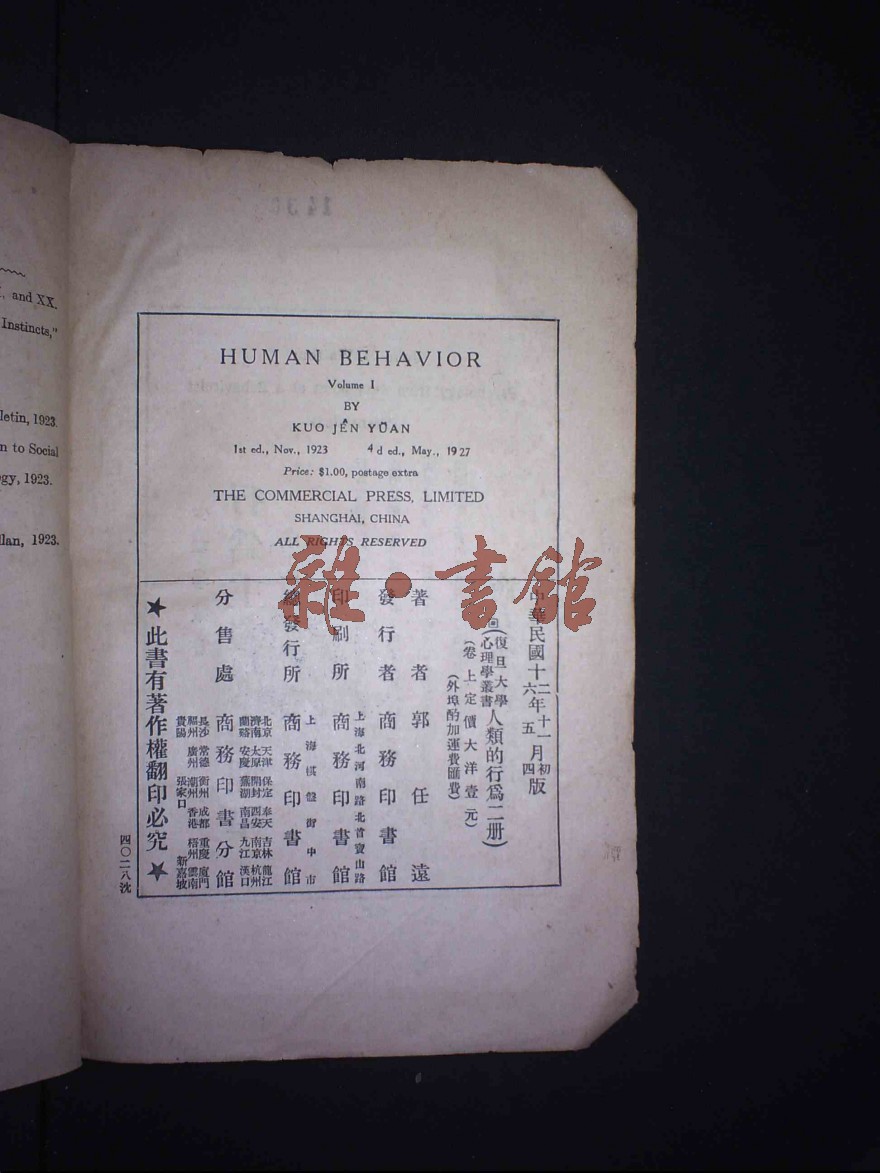 , and XX.
Instincts,"
letin, 1923.
n to Social
gy, 1923.
llan, 1923.
HUMAN BEHAVIOR
Volume I
BY
KUO JÊN YÜAN
1st ed., Nov., 1923 4 d ed., May., 1927
Price: $1.00, postage extra
THE COMMERCIAL PRESS, LIMITED
SHANGHAI, CHINA
ALL RIGHTS RESERVED
雜·書館
中華民國十二年十一月初版
六 五 四
(復旦大學心理學叢書人類的行爲二册)
(卷上定價大洋壹元)
(外埠酌加運費匯費)
著者 郭任遠
發行者 商務印書館
上海北河南路北首寶山路
印刷所 商務印書館
上海棋盤街中市
總發行所 商務印書館
北京 天津 保定 奉天 吉林 龍江
濟南 太原 開封 西安 南京 杭州
蘭谿 安慶 蕪湖 南昌 九江 漢口
分售處 商務印書分館
長沙 常德 衡州 成都 重慶 廈門
福州 廣州 潮州 香港 梧州 雲南
貴陽 張家口 新嘉坡
★此書有著作權翻印必究★
四〇二八沈